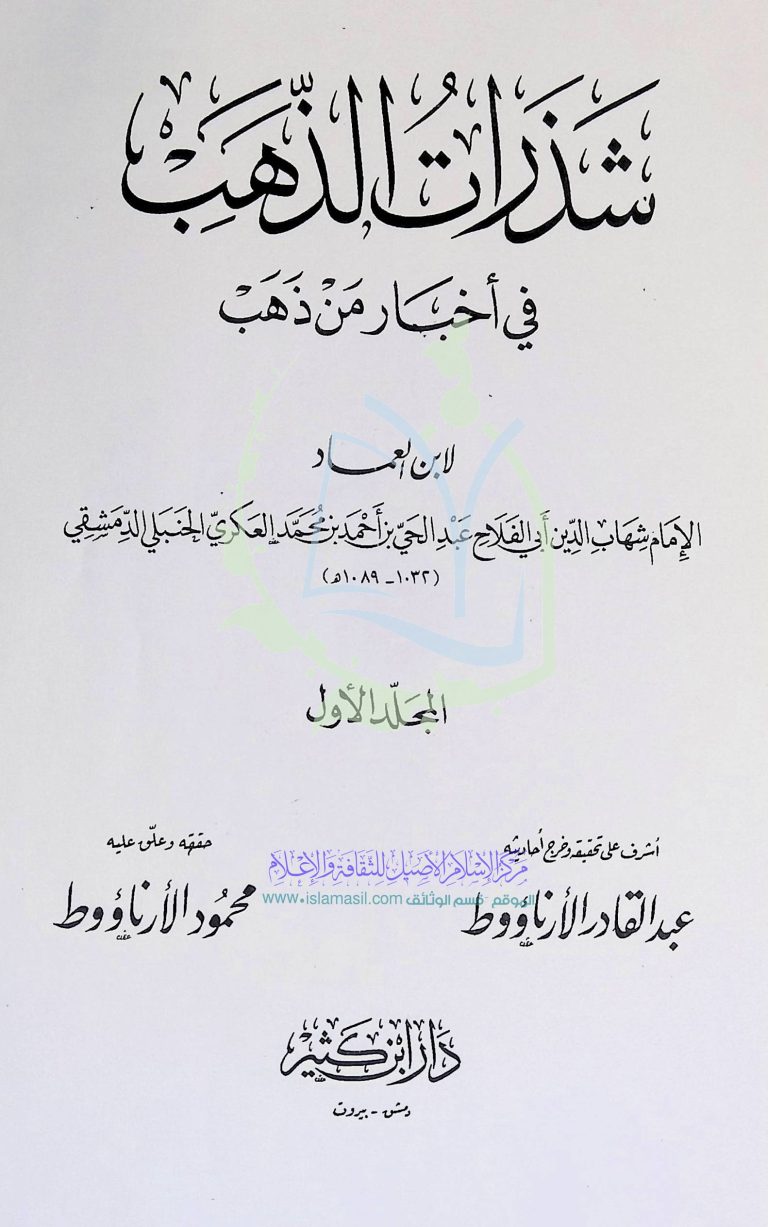 شَذَرَاتُ الذَّهَبِ
في أخبار مَنْ ذَهَبَ
لابن العماد
الإمَام شِهَاب الدِّين أبي الفَلَاح عَبْد الحَيّ بن أَحْمَد بن مُحَمَّد العَكري الحَنبَلي الدِّمَشقِي
(١٠٣٢ - ١٠٨٩هـ)
المجَلّد الأول
أشرف على تحقيقه وخرج أحاديثه
عبد القادر الأرناؤوط
حققه وعلّق عليه
محمُود الأرناؤوط
مركز الإسلام الأصيل للثقافة والإعلام
الموقع - قسم الوثائق www.islamasil.com
دَار ابن كَثير
دمشق - بيروت